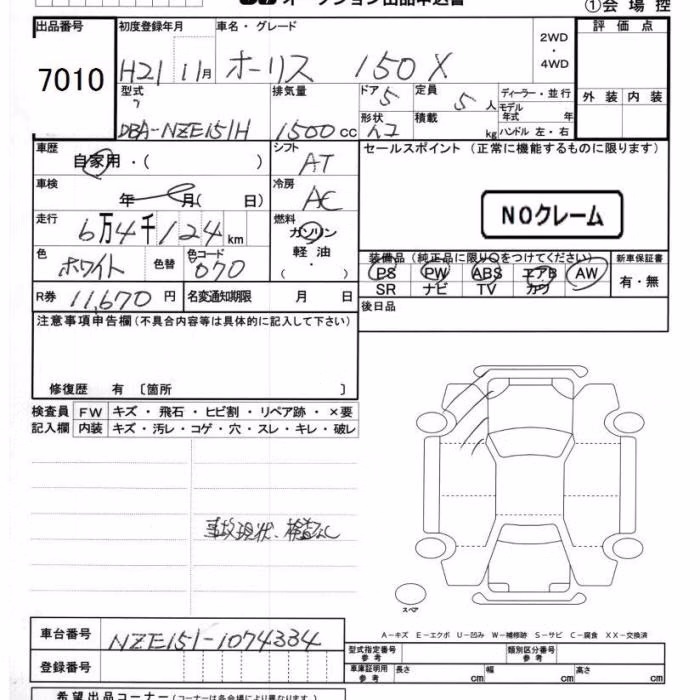 オークション出品申込書
①会場控
出品番号 初度登録年月 車名・グレード 評価点
7010
H21 11月 オーリス 150X
2WD
・
4WD
型式 排気量 ドア 定員 ディーラー・並行 外装 内装
DBA-NZE151H 1500cc 5 5人 モデル年式 年
形状 積載 kg ハンドル 左・右
車歴 自家用・( ) シフト AT セールスポイント(正常に機能するものに限ります)
車検 年 月( 日) 冷房 AC
NOクレーム
走行 6万4千124km 燃料 ガソリン
軽油
・( )
色 ホワイト 色替 色コード 070
装備品(純正品に限り○をつけてください) 新車保証書
PS PW ABS エアB AW 有・無
SR ナビ TV カワ
R券 11,670円 名変通知期限 月 日 後日品
注意事項申告欄(不具合内容等は具体的に記入して下さい)
修復歴 有〔箇所 〕
検査員 FW キズ・飛石・ヒビ割・リペア跡・×要
記入欄 内装 キズ・汚レ・コゲ・穴・スレ・キレ・破レ
事故現状、検査なし
スペア
A−キズ E−エクボ U−凹み W−補修跡 S−サビ C−腐食 XX−交換済
車台番号 NZE151-1074334
型式指定番号 参考 類別区分番号 参考
登録番号
車庫証明用 参考 長さ cm 幅 cm 高さ cm
希望出品コーナー(コーナーは各会場により異なります)